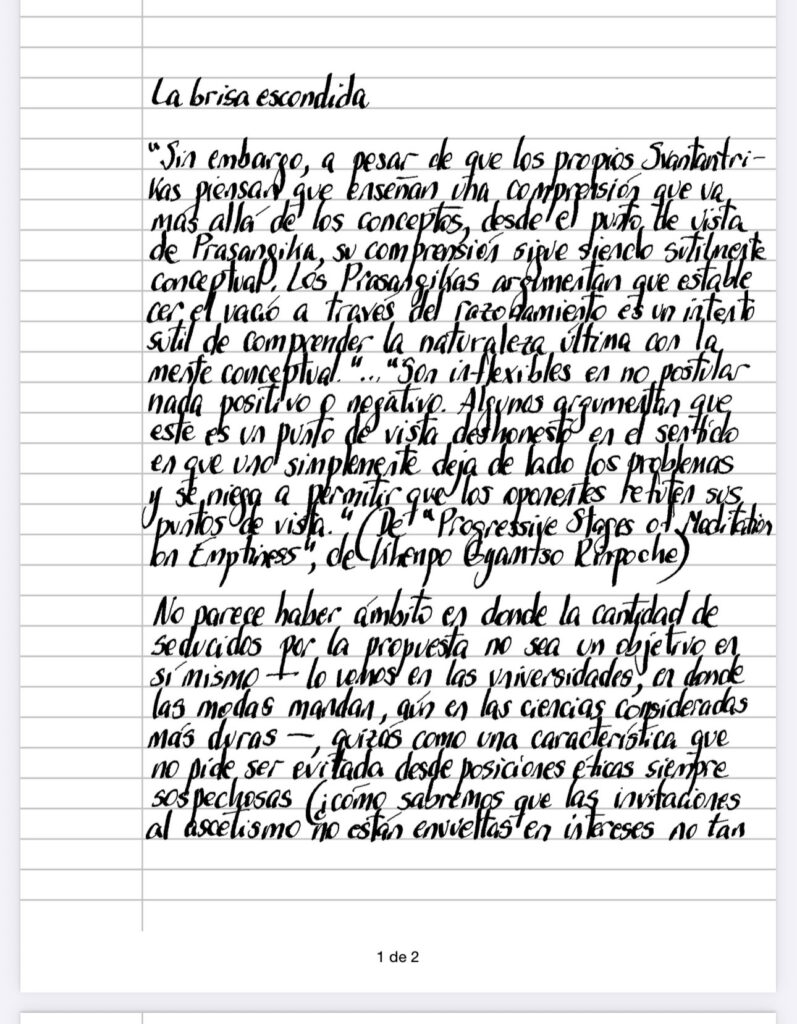 La brisa escondida
"Sin embargo, a pesar de que los propios Svantantri-
kas piensan que enseñan una comprensión que va
más allá de los conceptos, desde el punto de vista
de Prasangika, su comprensión sigue siendo sutilmente
conceptual. Los Prasangikas argumentan que estable
cer el vacío a través del razonamiento es un intento
sutil de comprender la naturaleza última con la
mente conceptual."..."Son inflexibles en no postular
nada positivo o negativo. Algunos argumentan que
este es un punto de vista deshonesto en el sentido
en que uno simplemente deja de lado los problemas
y se niega a permitir que los oponentes refuten sus
puntos de vista." (De "Progressive Stages of Meditation
on Emptiness", de Khenpo Gyamtso Rinpoche)
No parece haber ámbito en donde la cantidad de
seducidos por la propuesta no sea un objetivo en
sí mismo — lo vemos en las universidades, en donde
las modas mandan, aún en las ciencias consideradas
más duras —, quizás como una característica que
no pide ser evitada desde posiciones éticas siempre
sospechosas (¿cómo sabremos que las invitaciones
al ascetismo no están envueltas en intereses no tan
1 de 2